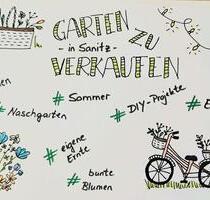 GARTEN ZU
- in Sanitz -
VERKAUFEN
# Sommer
# DIY-Projekte
# Naschgarten
# eigene
Ernte
# bunte
Blumen